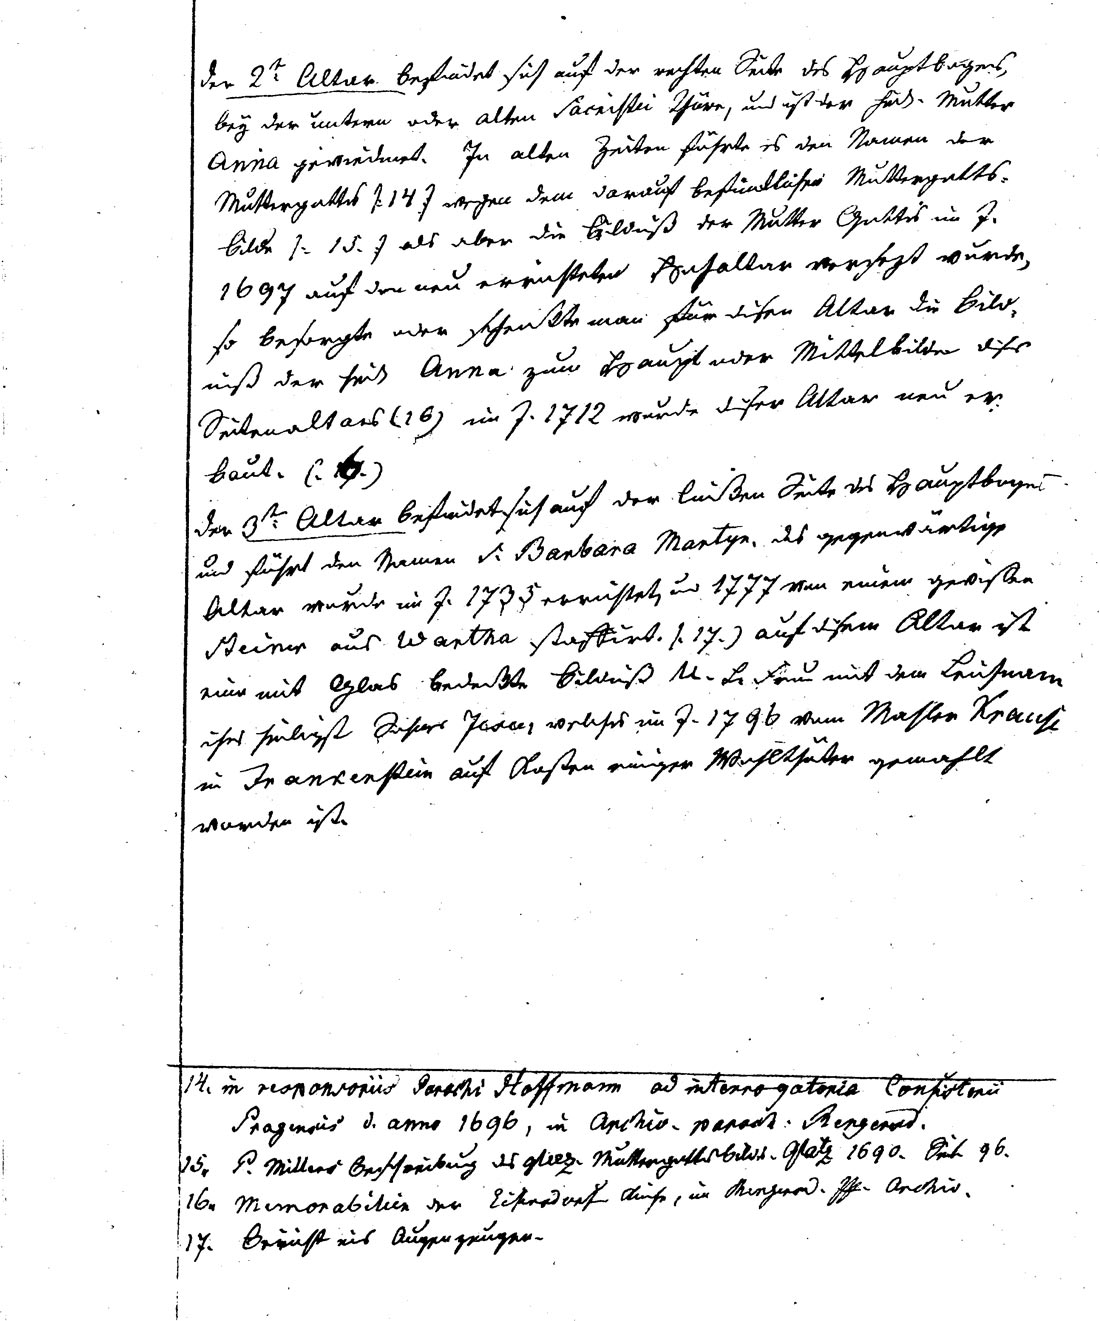 Der 2te Altar befindet sich auf der rechten Seite des Hauptbogens,
bey der untern oder alten Sacristei Thüre, und ist der heil. Mutter
Anna gewiedmet. In alten Zeiten führte es den Namen der
Muttergottes /:14:/ wegen dem darauf befindlichen Muttergottes-
bilde /: 15. :/ als aber die Bildniß der Mutter Gottes im J.
1697 auf den neu errichteten Hochaltar versezt wurde,
so besorgte oder schenkte man für disen Altar die Bild-
niß der heil. Anna zum Haupt oder Mittelbilde dises
Seitenaltars (16) im J. 1712 wurde diser Altar neu er-
baut. (:
Der 3te Altar befindet sich auf der linken Seite des Hauptbogens
und führt den Namen S. Barbara Martyr. das gegenwärtige
Altar wurde im J. 1735 errichtet, und 1777 von einem gewissen
Steiner aus Wartha staffirt. /:17.) auf disem Altar ist
eine mit Glas bedekte Bildniß U. L. Frau mit dem Leichnam
ihres heiligst Sohnes Jesu, welches im J. 1796 vom Mahler Krause
in Frankenstein auf Kosten einiger Wohlthäter gemahlt
worden ist.
14. in responsoriis Parochi Hoffmann ad interrogatoria Consistorii
Pragensis d. anno 1696, in Archiv. paroch. Rengersd.
15. P. Millers Beschreibung des glaz. Muttergottesbilds. Glatz 1690. Seit 96.
16. Memorabilien der Eisersdorf Kirche, im Rengersd. Pf. Archiv.
17. Bericht eis Augenzeugen.